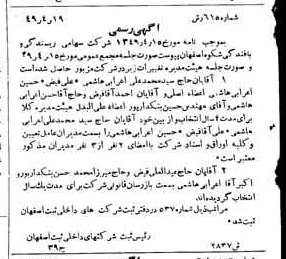 شماره ۶۱۵ر ش ۴۹ر۴ر۱۹
آگهی رسمی
بموجب نامه مورخ ۱۵ر۴ر۱۳۴۹ شرکت سهامی ریسندگی و
بافندگی شکوه اصفهان بپیوست صورت جلسه مجمع عمومی مورخ ۱۵ر۴ر۴۹
و صورت جلسه هیئت مدیره تغییرات زیر در شرکت مزبور حاصل شده است
۱ آقایان حاج سید محمدعلی اعرابی هاشمی ـ علی فیض ـ حسین
اعرابی هاشمی اعضاء اصلی و آقایان احمد آقا فیض و حاج آقا حسن اعرابی
هاشمی و آقای مهندس حسین بنکدارپور اعضاء علی البدل هیئت مدیره کلا
برای مدت ۲ سال انتخاب و از بین خود آقایان حاج سید محمد علی اعرابی
هاشمی ـ علی آقا فیض ـ حسین اعرابی هاشمی را بسمت مدیران عامل تعیین
و کلیه اوراق و اسناد شرکت با امضای ۲ نفر از ۳ نفر مدیران مذکور
معتبر است
۲ آقایان حاج عبدالعلی فیض و حاج میرزا محمد حسن بنکدارپور و
اکبر آقا اعرابی هاشمی بسمت بازرسان قانونی شرکت برای مدت یکسال
انتخاب گردیده‌اند
مراتب ذیل شماره ۵۳۷ در دفتر ثبت شرکت های داخلی ثبت اصفهان
ثبت شد
رئیس ثبت شرکتهای داخلی ثبت اصفهان
ش ۲۸۳۷ ح ۳۹